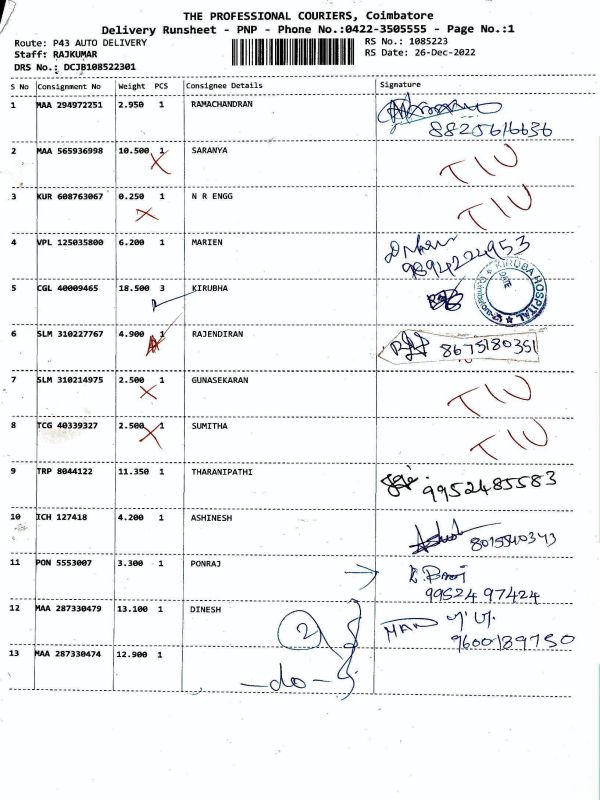 THE PROFESSIONAL COURIERS, Coimbatore
Delivery Runsheet - PNP - Phone No.:0422-3505555 - Page No.:1
Route: P43 AUTO DELIVERY
RS No.: 1085223
Staff: RAJKUMAR
RS Date: 26-Dec-2022
DRS No.: DCJB108522301
S No Consignment No Weight PCS Consignee Details Signature
1 MAA 294972251 2.950 1 RAMACHANDRAN
8825616636
2 MAA 565936998 10.500 1 SARANYA TIU
3 KUR 608763067 0.250 1 N R ENGG TIU
4 VPL 125035800 6.200 1 MARIEN
9894224953
5 CGL 40009465 18.500 3 KIRUBHA KIRUBA HOSPITAL
DATE
6 SLM 310227767 4.900 1 RAJENDIRAN 8675180351
7 SLM 310214975 2.500 1 GUNASEKARAN TIU
8 TCG 40339327 2.500 1 SUMITHA TIU
9 TRP 8044122 11.350 1 THARANIPATHI 9952485583
10 ICH 127418 4.200 1 ASHINESH 8015540343
11 PON 5553007 3.300 1 PONRAJ
9952497424
12 MAA 287330479 13.100 1 DINESH 2
9600189750
13 MAA 287330474 12.900 1
-do-